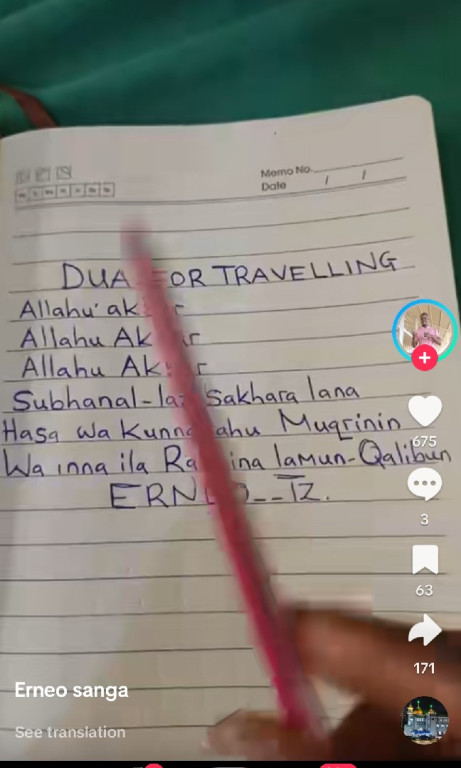 Memo No.
Date / /
DUA FOR TRAVELLING
Allahu' ak
Allahu Ak
Allahu Ak
Subhanal- Sakhara lana
Hasa wa Kunn ahu Muqrinin
Wa inna ila Ra ina lamun-Qalibun
ERN -- TZ.
675
3
63
171
Erneo sanga
See translation